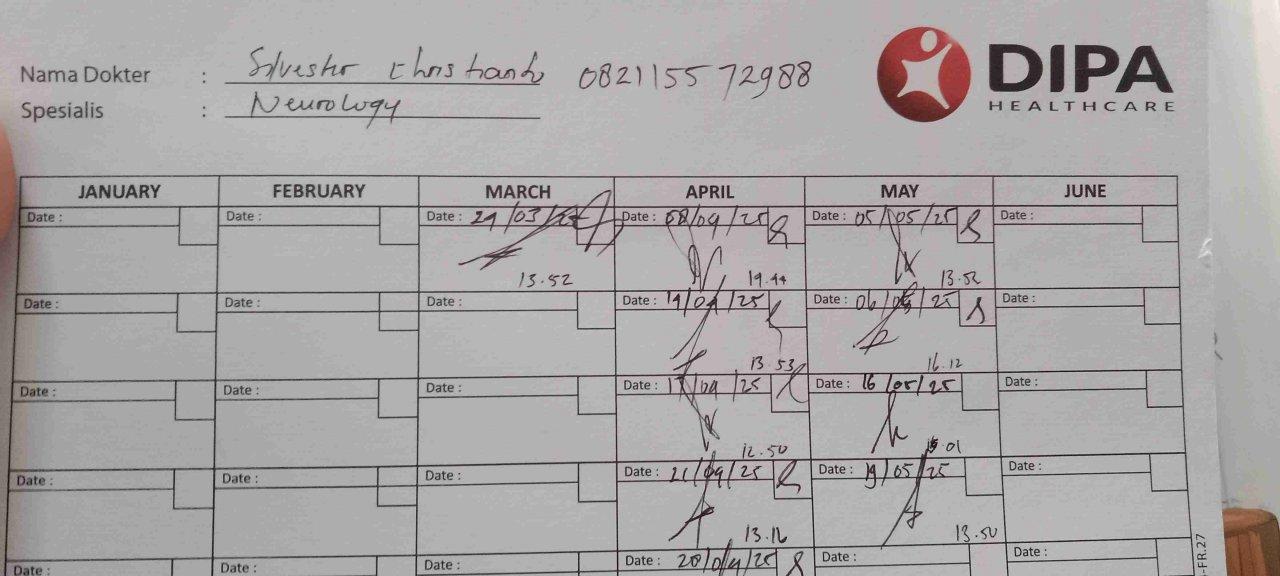 DIPA
HEALTHCARE
Nama Dokter : Silvester Christianto 082115572988
Spesialis : Neurology
JANUARY FEBRUARY MARCH APRIL MAY JUNE
Date : Date : Date : 24/03/25 Date : 08/04/25 Date : 05/05/25 Date :
13.52 14.44 13.52
Date : Date : Date : Date : 14/04/25 Date : 06/05/25 Date :
13.53 16.12
Date : Date : Date : Date : 17/04/25 Date : 16/05/25 Date :
12.50 15.01
Date : Date : Date : Date : 21/04/25 Date : 19/05/25 Date :
13.16 13.50
Date : Date : Date : Date : 28/04/25 Date : Date :
-FR.27